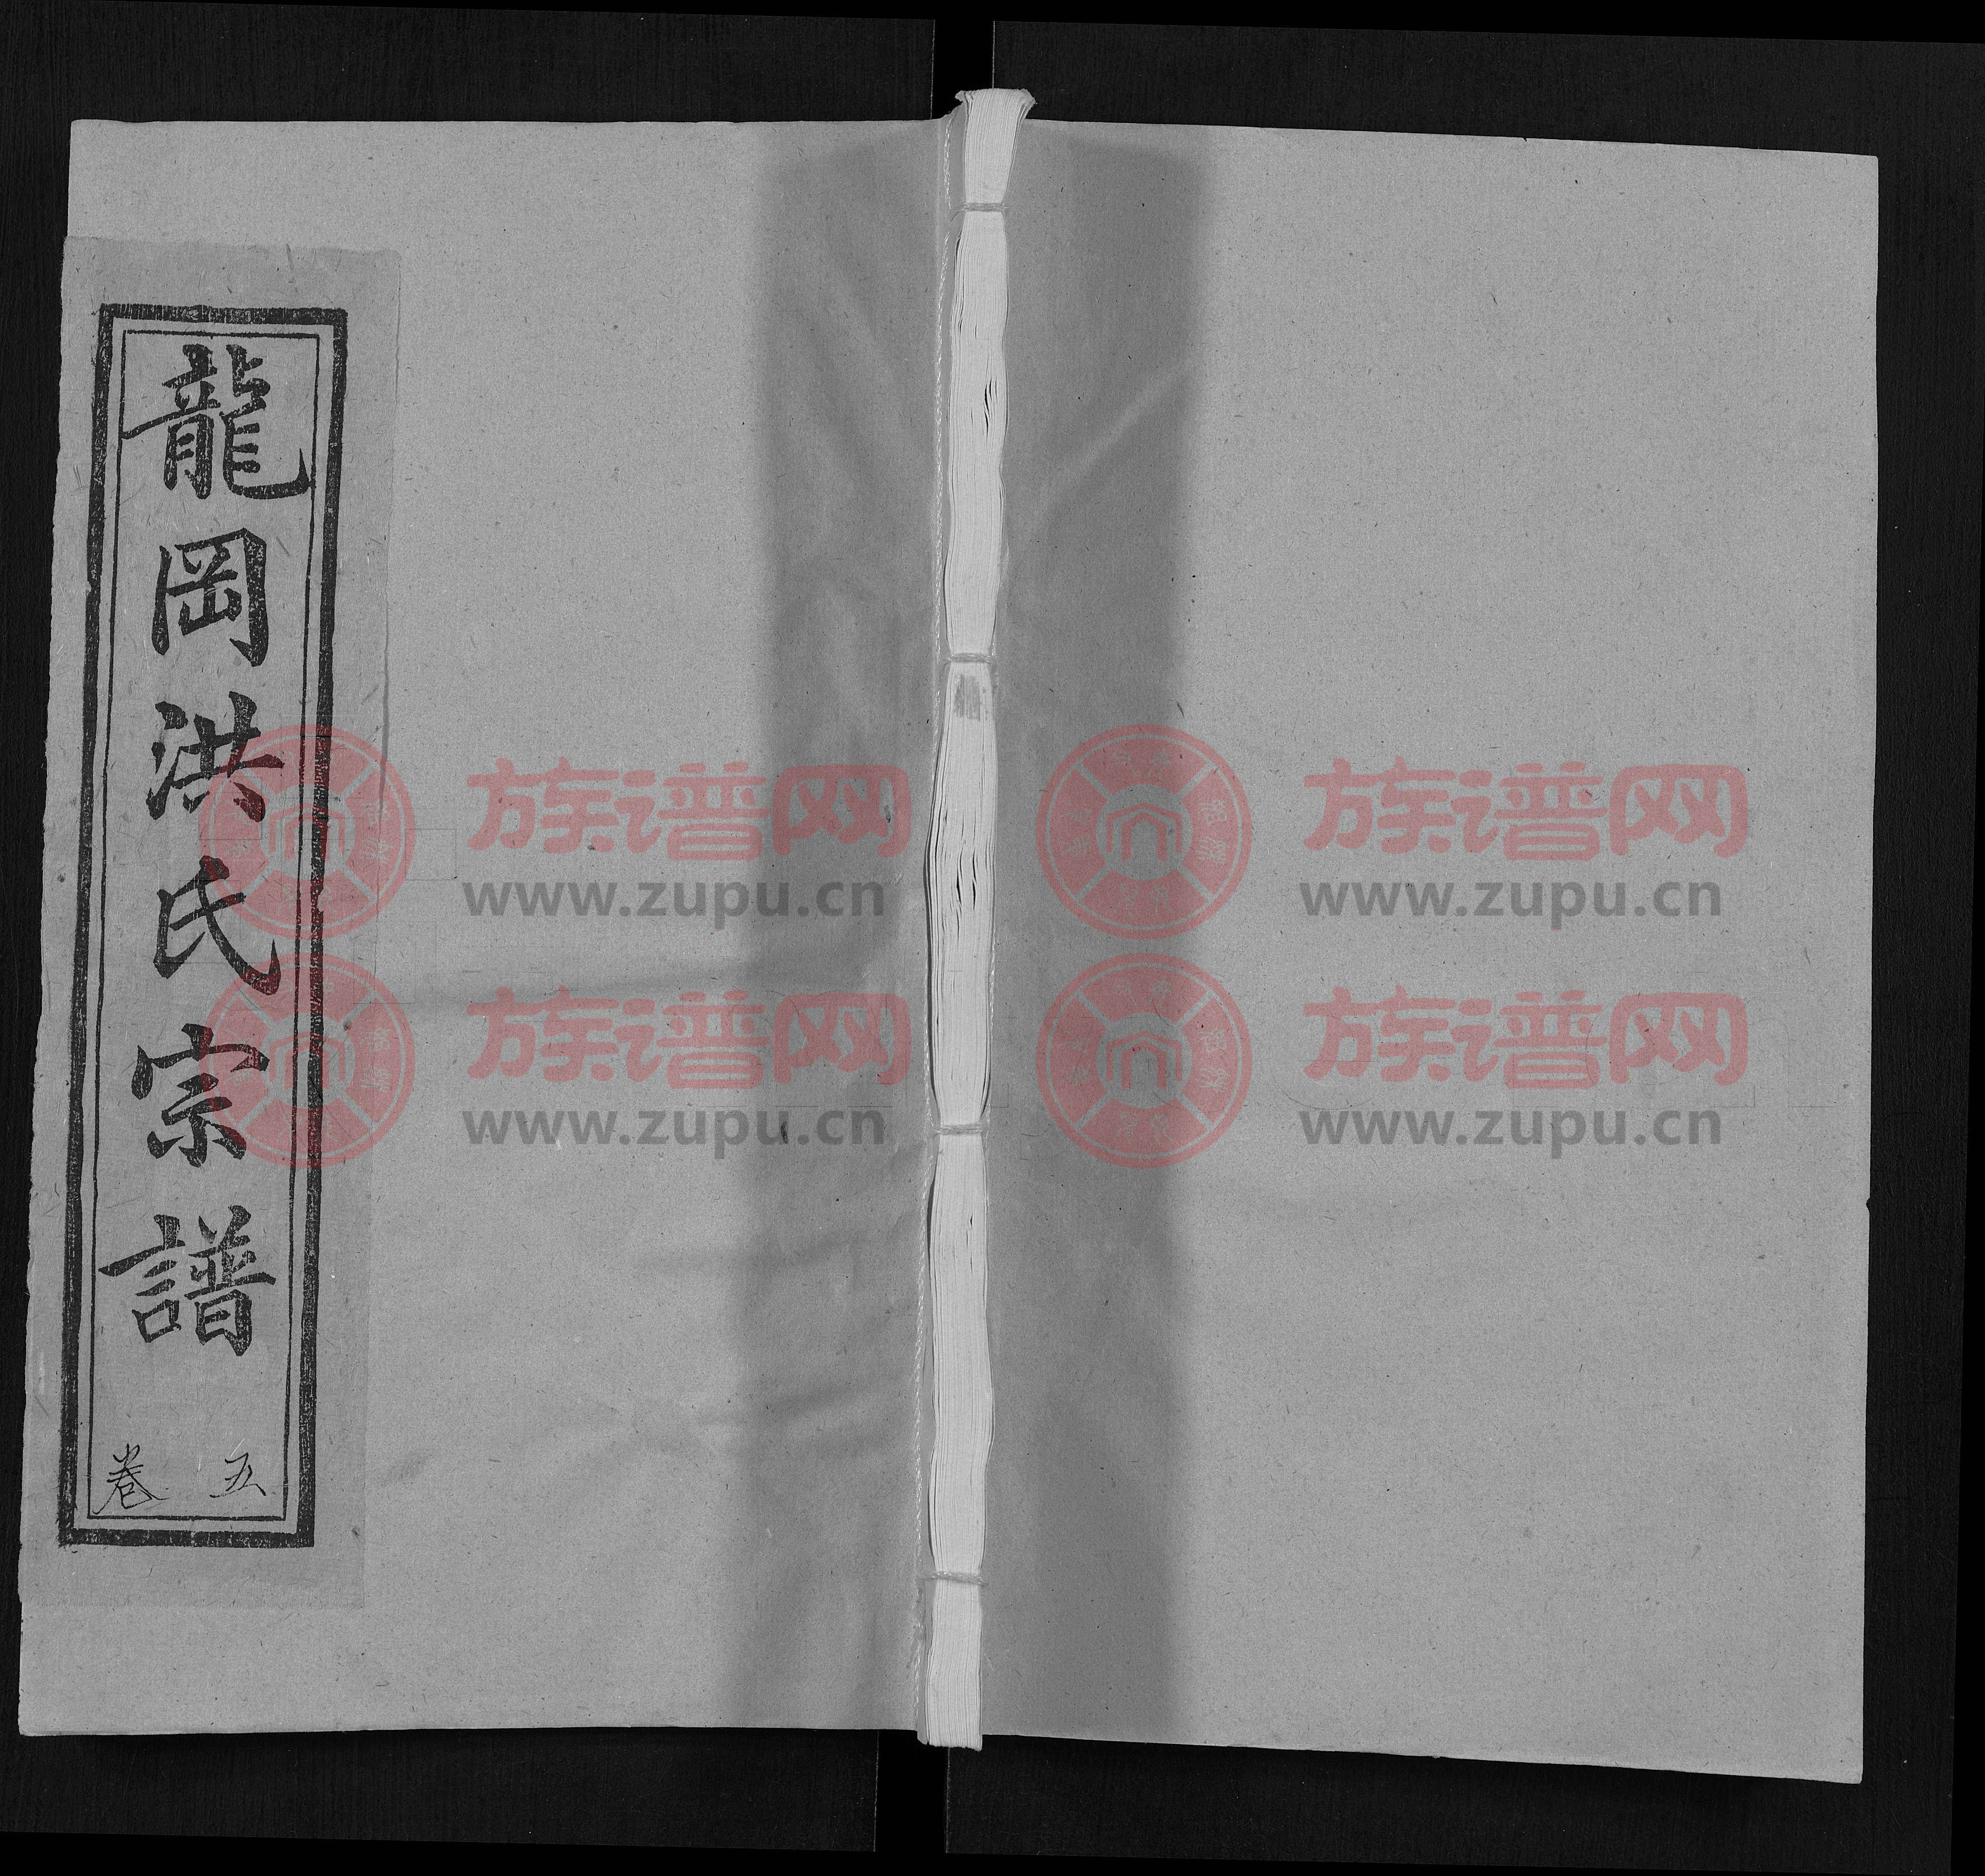 龍岡洪氏宗譜
卷五
族谱网 族谱网
www.zupu.cn www.zupu.cn
族谱网 族谱网
www.zupu.cn www.zupu.cn